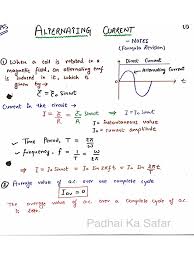 ALTERNATING CURRENT
- NOTES
(Formula Revision)
① When a coil is rotated in a
magnetic field, an alternating emf
is induced in it, which is
given by
Ɛ = Ɛ₀ Sinωt
Direct Current
Alternating Current
t
Current in the circuit →
I = Ɛ/R = Ɛ₀/R Sinωt ⇒ I = I₀ Sinωt
I = Instantaneous value
I₀ = Current amplitude
✓ Time Period, T = 2π/ω
✓ frequency, f = 1/T = ω/2π
⇒ I = I₀ Sinωt = I₀ Sin 2πft = I₀ Sin 2π/T t
② Average value of a.c. over one complete cycle
Iav = 0
The average value of a.c. over a Complete Cycle of ac
is zero.
Padhai Ka Safar